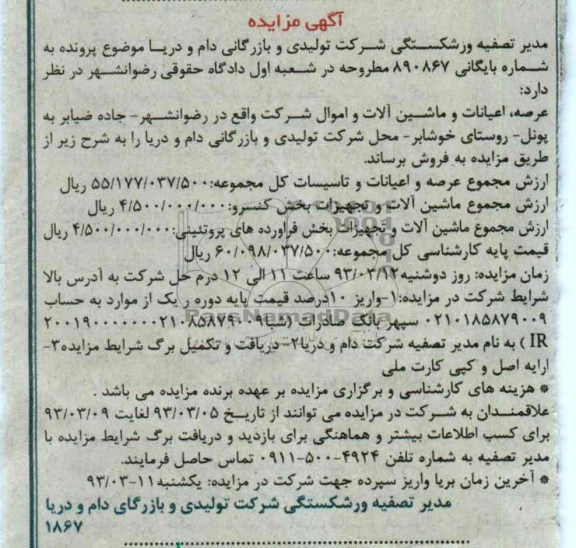 آگهی مزایده
مدیر تصفیه ورشکستگی شرکت تولیدی و بازرگانی دام و دریا موضوع پرونده به
شماره بایگانی ۸۹۰۸۶۷ مطروحه در شعبه اول دادگاه حقوقی رضوانشهر در نظر
دارد:
عرصه، اعیانات و ماشین آلات و اموال شرکت واقع در رضوانشهر- جاده ضیابر به
پونل- روستای خوشابر- محل شرکت تولیدی و بازرگانی دام و دریا را به شرح زیر از
طریق مزایده به فروش برساند.
ارزش مجموع عرصه و اعیانات و تاسیسات کل مجموعه:۵۵/۱۷۷/۰۳۷/۵۰۰ ریال
ارزش مجموع ماشین آلات و تجهیزات بخش کنسرو:۴/۵۰۰/۰۰۰/۰۰۰ ریال
ارزش مجموع ماشین آلات و تجهیزات بخش فرآورده های پروتئینی:۴/۵۰۰/۰۰۰/۰۰۰ ریال
قیمت پایه کارشناسی کل مجموعه:۶۰/۰۹۸/۰۳۷/۵۰۰ ریال
زمان مزایده: روز دوشنبه۹۳/۰۳/۱۲ ساعت ۱۱ الی ۱۲ درم حل شرکت به آدرس بالا
شرایط شرکت در مزایده:۱-واریز ۱۰درصد قیمت پایه دوره ر یک از موارد به حساب
۰۲۱۰۱۸۵۸۷۹۰۰۹ سپهر بانک صادرات (شبا۲۰۰۱۹۰۰۰۰۰۰۰۰۲۱۰۸۵۸۷۹۰۰۹
IR ) به نام مدیر تصفیه شرکت دام و دریا۲- دریافت و تکمیل برگ شرایط مزایده۳-
ارایه اصل و کپی کارت ملی
* هزینه های کارشناسی و برگزاری مزایده بر عهده برنده مزایده می باشد .
علاقمندان به شرکت در مزایده می توانند از تاریخ ۹۳/۰۳/۰۵ لغایت ۹۳/۰۳/۰۹
برای کسب اطلاعات بیشتر و هماهنگی برای بازدید و دریافت برگ شرایط مزایده با
مدیر تصفیه به شماره تلفن ۴۹۲۴-۵۰۰-۰۹۱۱ تماس حاصل فرمایند.
* آخرین زمان بریا واریز سپرده جهت شرکت در مزایده: یکشنبه۱۱-۹۳/۰۳
مدیر تصفیه ورشکستگی شرکت تولیدی و بازرگای دام و دریا
۱۸۶۷
ParsNamadData